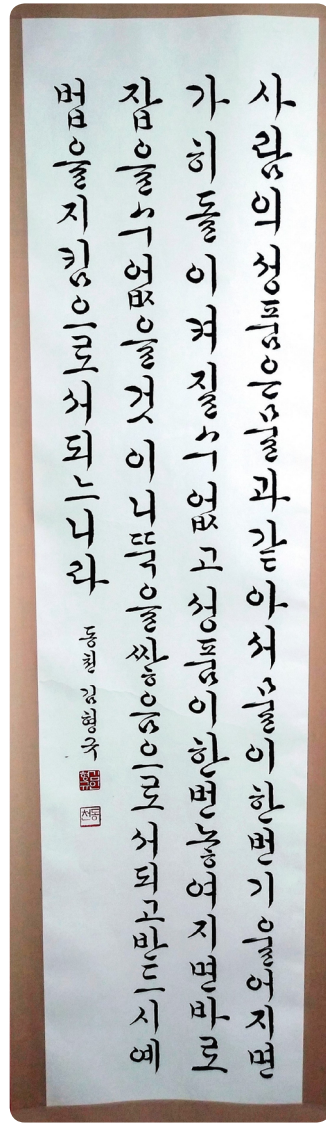 사람의성품은물과같아서물이한번기울어지면
가히돌이켜질수없고성품이한번놓여지면바로
잡을수없을것이니뚝을쌓음으로서되고반드시예
법을지킴으로서되느니라
동천 김형국
동천